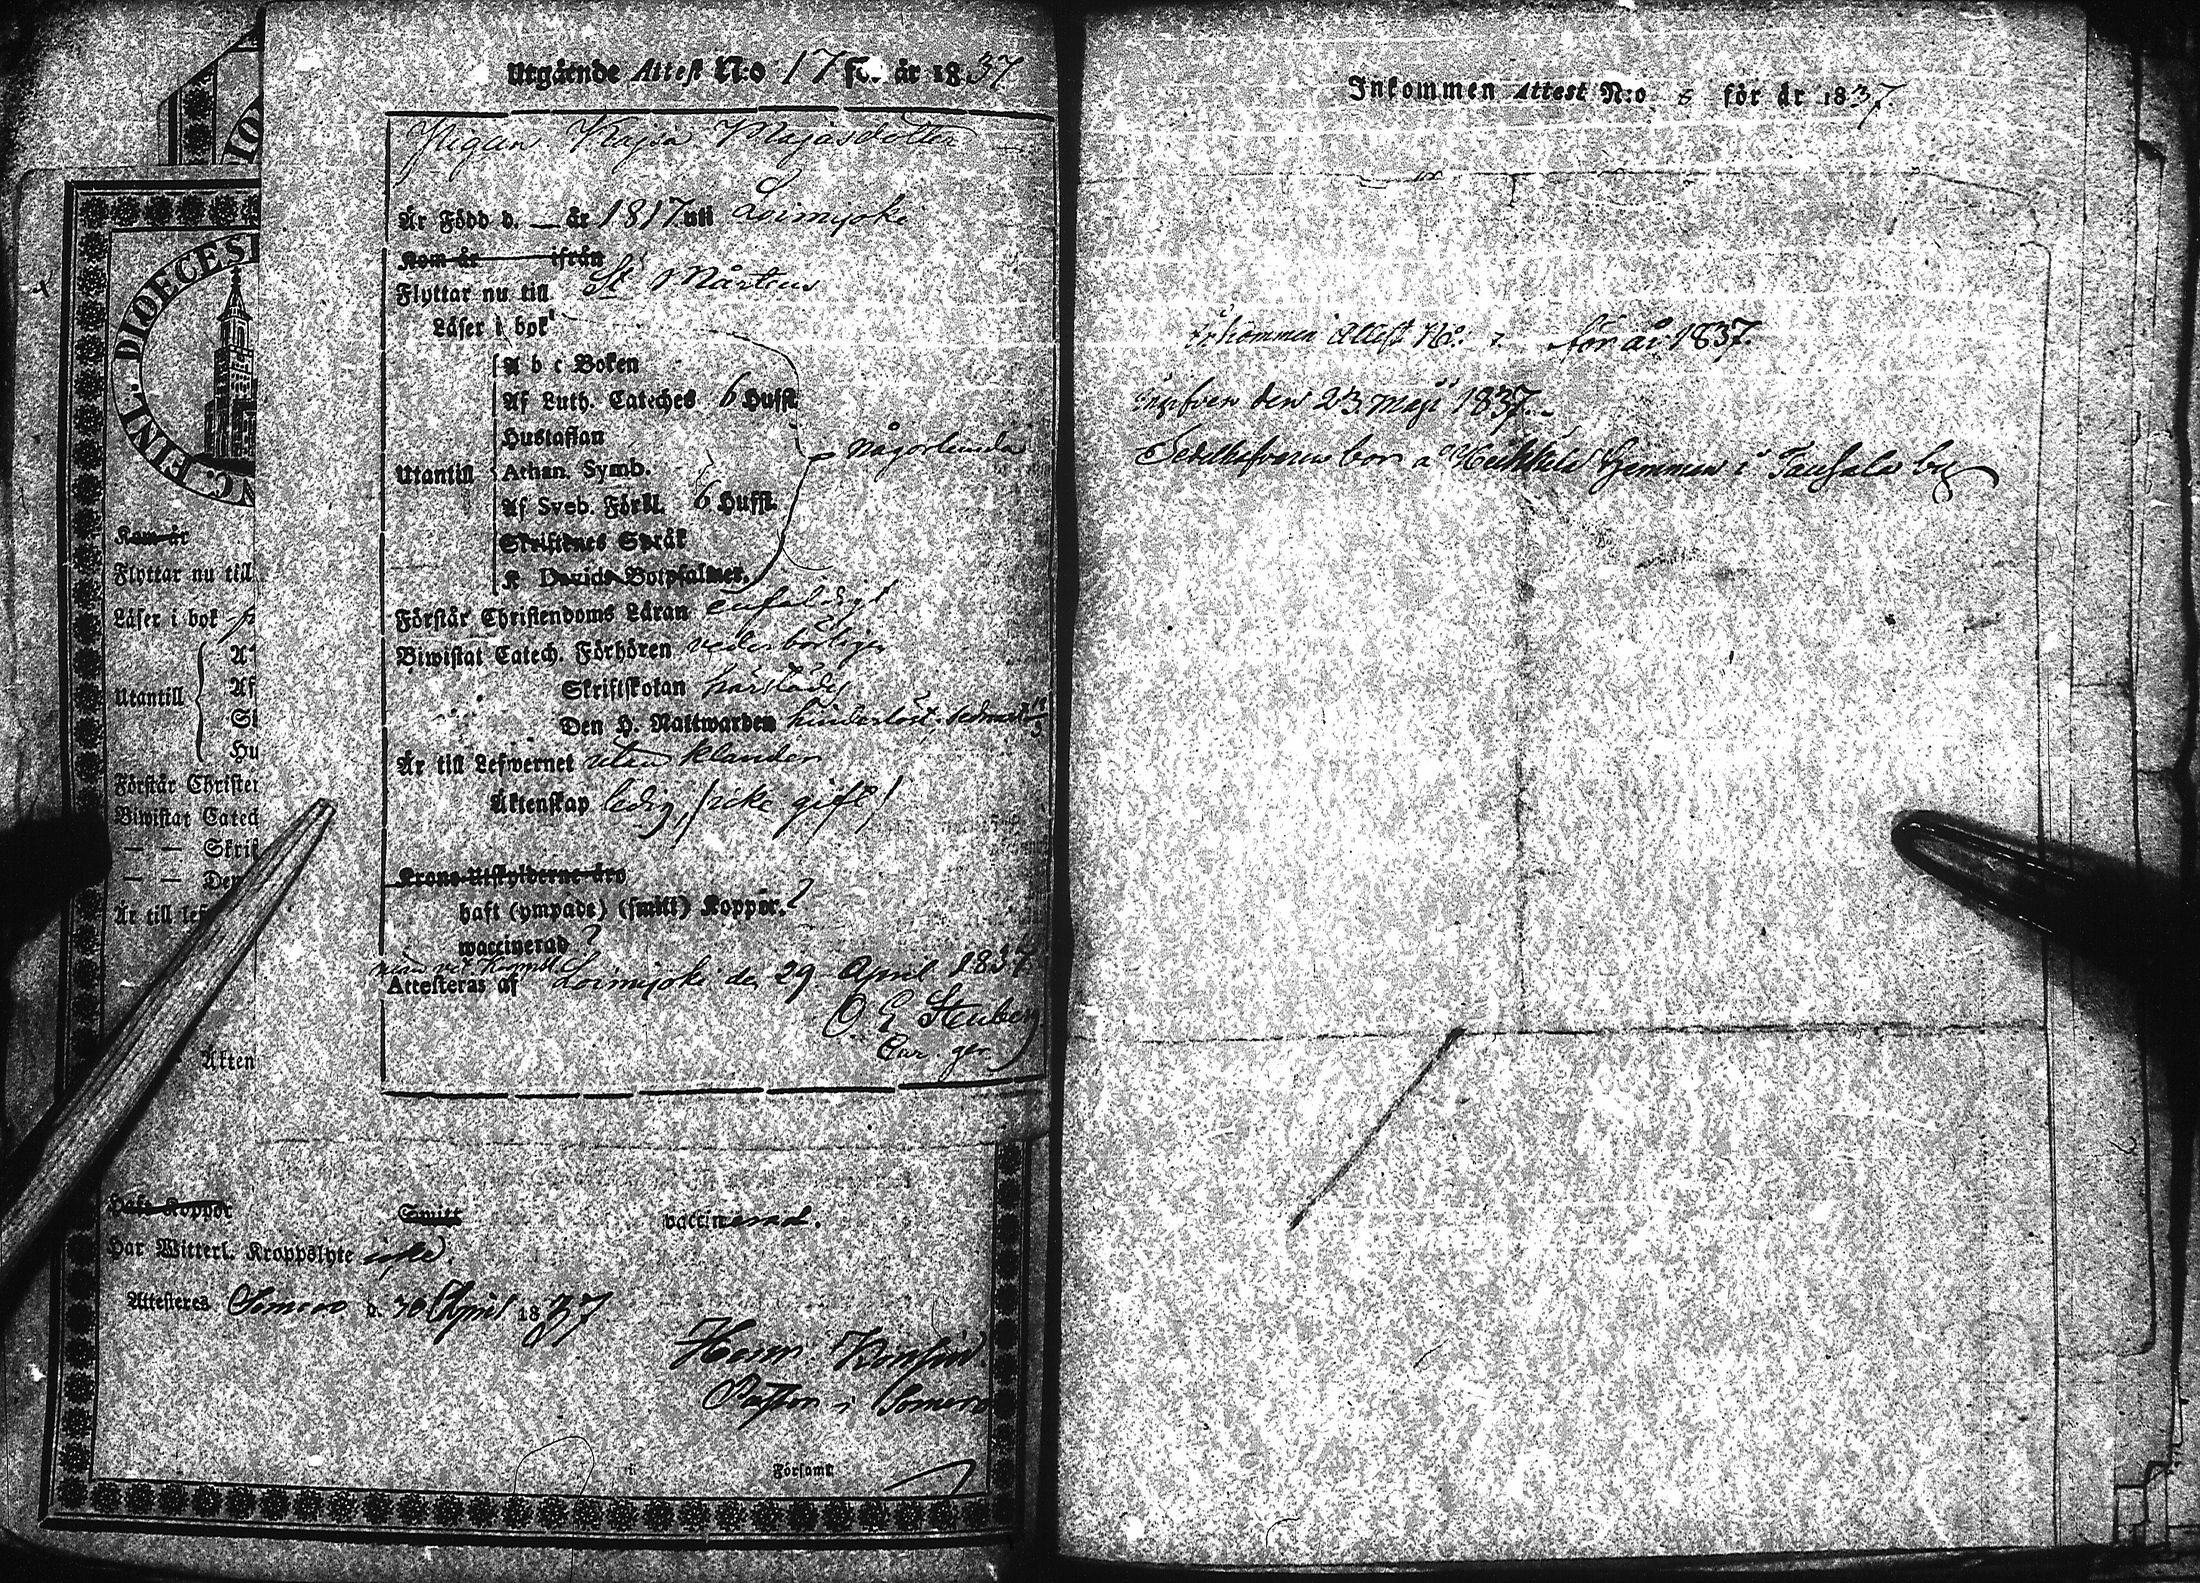 Utgående Attest N:o 17 för år 1837
Pigan Kajsa Majasdotter
Är Född d. — år 1817 uti Loimijoki
Kom år ifrån
Flyttar nu till St Mårtens
Läser i bok
A b c Boken
Af Luth. Cateches 6 Hufst.
Hustaflan
någorlunda
Utantill
Athan. Symb.
Af Sveb. Förkl. 6 Hufst.
Skriftenes Språk
K Davids Botpsalmer.
Förstår Christendoms Läran enfaldigt
Biwistat Catech. Förhören vederbörligen
Skriftskolan härstädes
Den H. Nattwarden hinderlöst, sednast
Är till Lefwernet utan klander
Äktenskap ledig, (icke gift)
Krono Utskylderne äro
haft (ympade) (smitt) Koppor. ?
waccinerad ?
Attesteras af Loimijoki den 29 April 1837
O E Stenberg
Cur. ger.
INC. FINL. DIOECES
Kom år
Flyttar nu till
Läser i bok
Utantill
Af
Hu
Förstår Christen
Biwistat Catech
— — Skrif
— — Den
Är till lef
Äkten
Haft Koppor Smitt vaccinerad.
Har Witterl. Kroppslyte icke.
Attesteres Somero d. 30 April 1837
Henr.
Pastor i Somero
i Församl.
Inkommen Attest N:o 8 för år 1837.
Inkommen Attest No: 7 för år 1837.
den 23 Maji 1837.
Sedelhafvaren bor å Heikkilä hemman i Tausala by